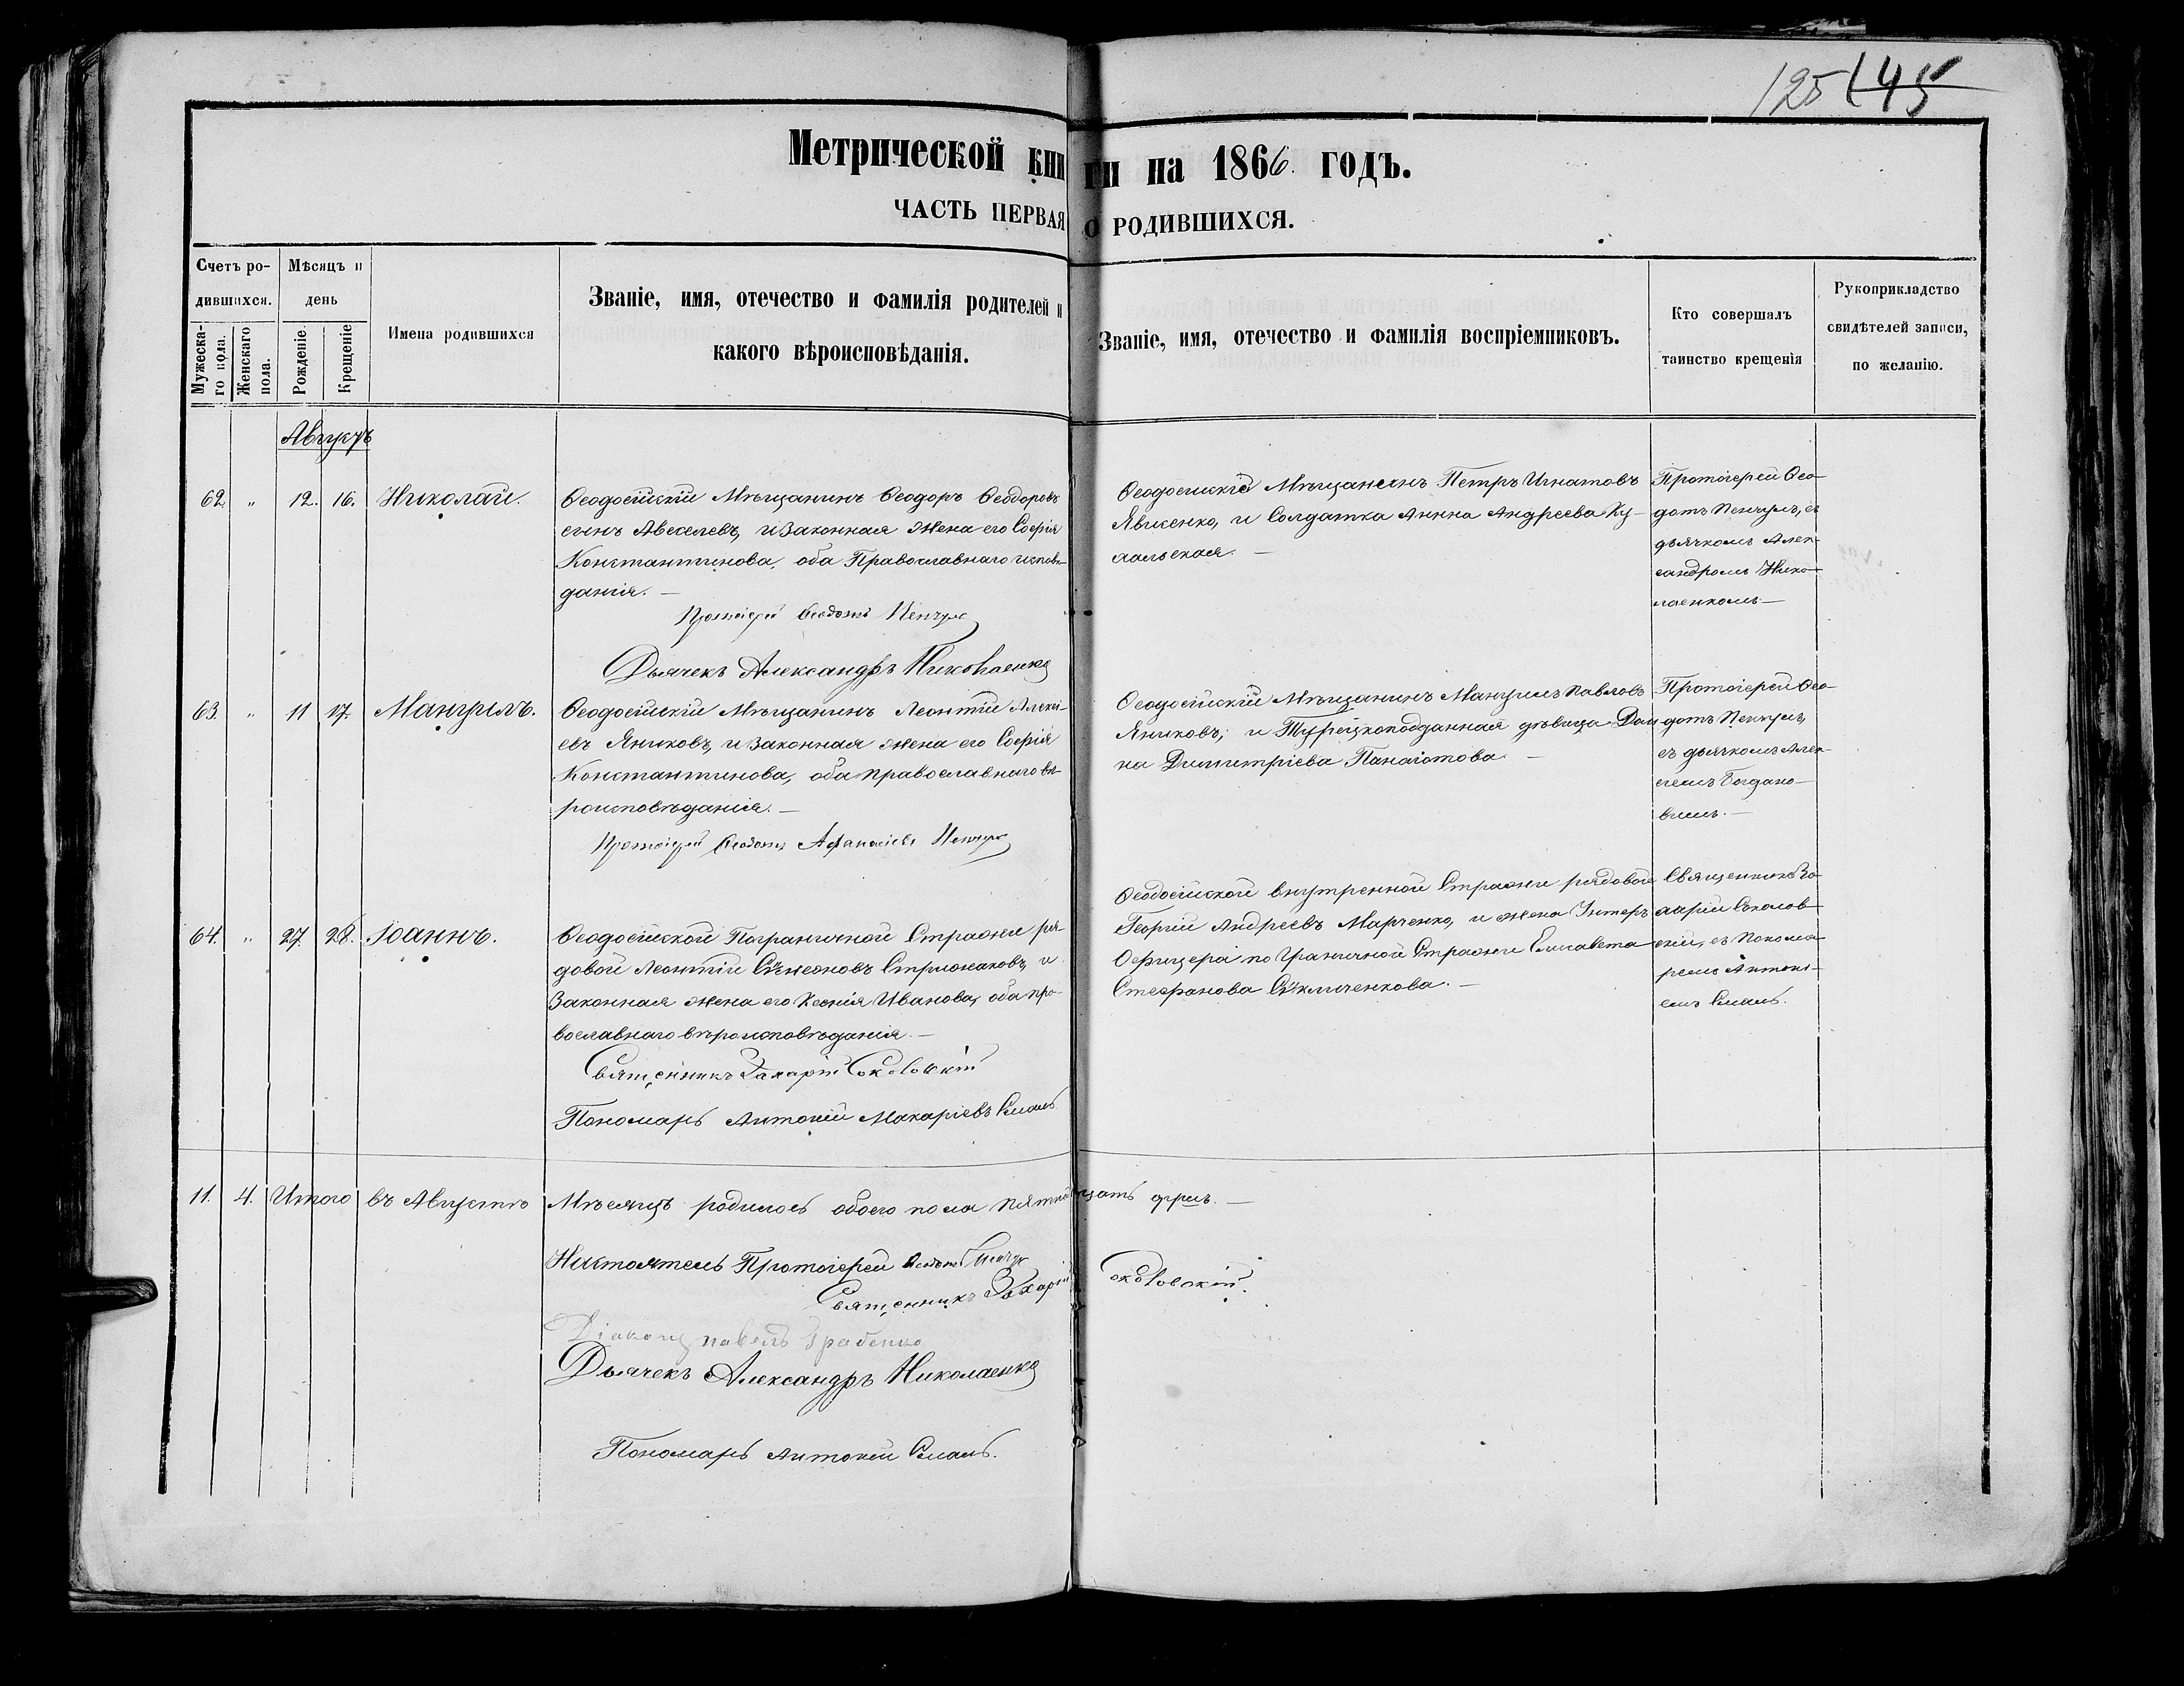 125 145
Метрической книги на 1866. годъ.
ЧАСТЬ ПЕРВАЯ О РОДИВШИХСЯ.
Счетъ ро-
дившихся.
Мужеска-
го пола.
Женскаго
пола.
Мѣсяцъ и
день
Рожденіе.
Крещеніе
Имена родившихся
Званіе, имя, отечество и фамилія родителей и
какого вѣроисповѣданія.
Званіе, имя, отечество и фамилія воспріемниковъ.
Кто совершалъ
таинство крещенія
Рукоприкладство
свидѣтелей записи,
по желанію.
Августъ
62. " 12. 16. Николай.
Ѳеодосійскій Мѣщанинъ Ѳеодоръ Ѳеодоровъ
сынъ и законная жена его Софія
Константинова, оба Православнаго исповѣ-
данія. —
Протоіерей Ѳеодотъ Пенчулъ
Дьячекъ Александръ Николаенко
Ѳеодосійскій Мѣщанинъ Петръ Игнатовъ
и Солдатка Анна Андреева Ку-
—
Протоіерей Ѳео-
дотъ Пенчулъ, съ
дьячкомъ Алек-
сандромъ Нико-
лаенкомъ —
63. " 11 17. Мануилъ.
Ѳеодосійскій Мѣщанинъ Леонтій Алексі-
евъ Яниковъ, и законная жена его Софія
Константинова, оба православнаго вѣ-
роисповѣданія. —
Протоіерей Ѳеодотъ Афанасіевъ Пенчулъ
Ѳеодосійскій Мѣщанинъ Мануилъ Павловъ
Яниковъ; и Турецкоподданная дѣвица Дом-
на Димитріева Панаіотова —
Протоіерей Ѳео-
дотъ Пенчулъ,
съ дьячкомъ Алек-
сѣемъ Богдано-
вымъ. —
64. " 27. 28. Іоаннъ.
Ѳеодосійской Пограничной Стражи ря-
довой Леонтій Сѵмеоновъ Стрижаковъ, и
Законная жена его Ксенія Иванова, оба пра-
вославнаго вѣроисповѣданія. —
Священникъ Захарій Соколовскій
Пономарь Антоній Макаріевъ
Ѳеодосійской внутренной Стражи рядовой
Георгій Андреевъ Марченко, и жена Унтеръ
Офицера по Граничной Стражи Елисавета
Стефанова —
Священникъ За-
харій Соколов-
скій, съ Понома-
ремъ Антоні-
емъ
11. 4. Итого въ Августѣ Мѣсяцѣ родилось обоего пола пятнадцать душъ. —
Настоятель Протоіерей Ѳеодотъ Пенчулъ
Священникъ Захарій Соколовскій.
Діаконъ павелъ
Дьячекъ Александръ Николаенко
Пономарь Антоній